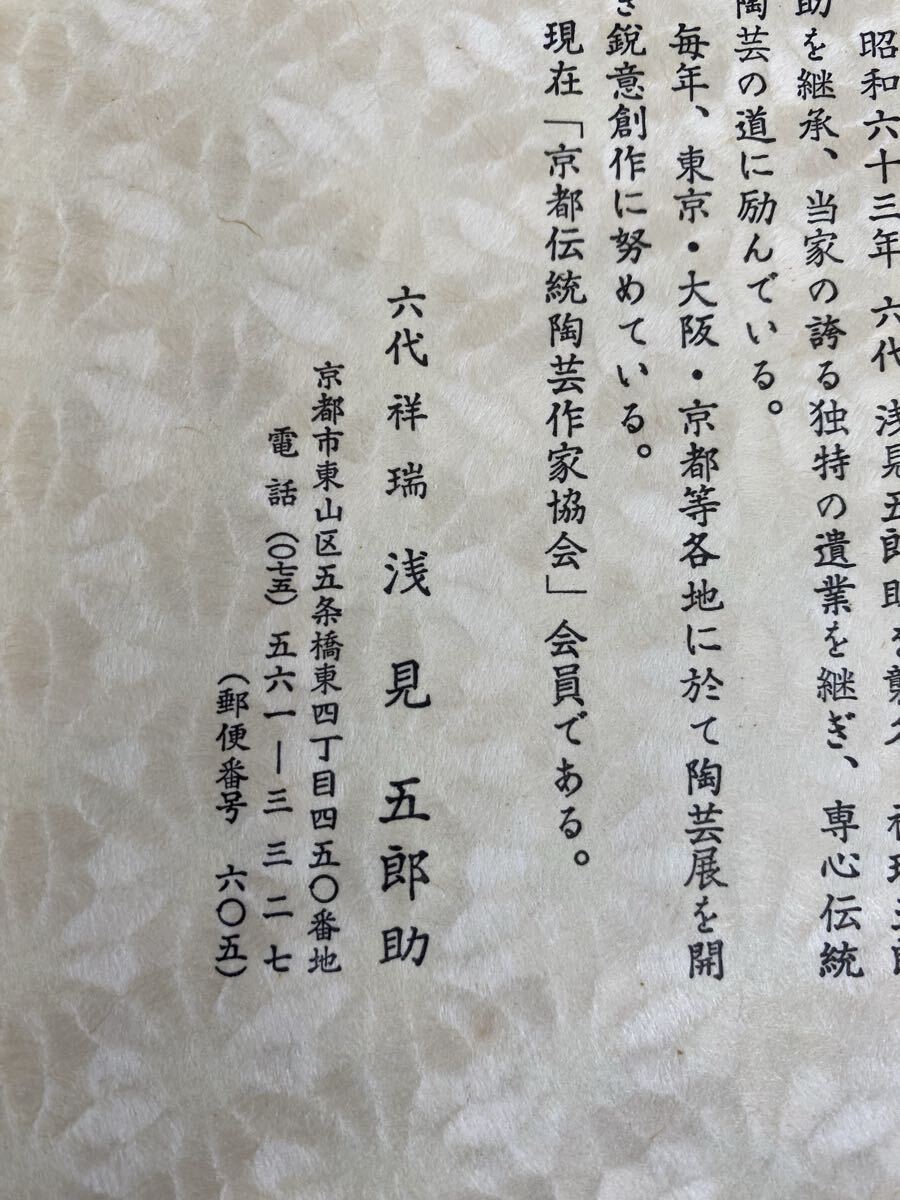 昭和六十三年 六代 浅見五郎助を襲名 祥瑞五郎
助を継承、当家の誇る独特の遺業を継ぎ、専心伝統
陶芸の道に励んでいる。
毎年、東京・大阪・京都等各地に於て陶芸展を開
き鋭意創作に努めている。
現在「京都伝統陶芸作家協会」会員である。
六代祥瑞 浅見五郎助
京都市東山区五条橋東四丁目四五〇番地
電話(〇七五)五六一―三三二七
(郵便番号 六〇五)